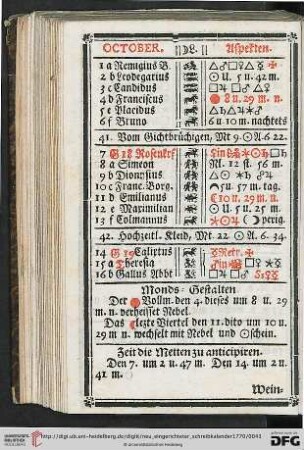 OCTOBER. ||DL.|| Aspekten.
1 a Remigius B. △♂□♀△☿✠
2 b Leodegarius ☉ U. 5 u. 42 m.
3 c Candidus □♃ □♂ △♀
4 d Franciscus 8 u. 29 m. n.
5 e Placidus △♄△♃✶♂
6 f Bruno 6 u 10 m. nachtets
41. Vom Gichtbrüchigen, Mt 9. ☉ A. 6 22.
7 G 18 Rosenkrf
8 a Simeon Nl. 12 st. 56 m.
9 b Dionysius △☉ ✶♄ ♂♃
10 c Franc. Borg. 5 u. 57 m. tag.
11 d Emilianus ☾ 10 u. 29 m. n.
12 e Maximilian ☉ U. 5 u. 25 m.
13 f Colmannus ✶♃♂☽ perig.
42. Hochzeitl. Kleid, Mt. 22 ☉ A. 6. 34.
14 G 19 Calixtus ☿ Retr. ✠
15 a Theresia
16 b Gallus Abbt □♃ □♂
Monds-Gestalten
Der Vollm. den 4. dieses um 8 u. 29
m. n. verheisset Nebel.
Das letzte Viertel den 11. dito um 10 u.
29 m n. wechselt mit Nebel und ☉schein.
Zeit die Metten zu anticipiren.
Den 7. um 2 u. 47 m. Den 14. um 2 u.
41 m.
Wein-
http://digi.ub.uni-heidelberg.de/diglit/neu_eingerichteter_schreibkalender1770/0043
© Universitätsbibliothek Heidelberg